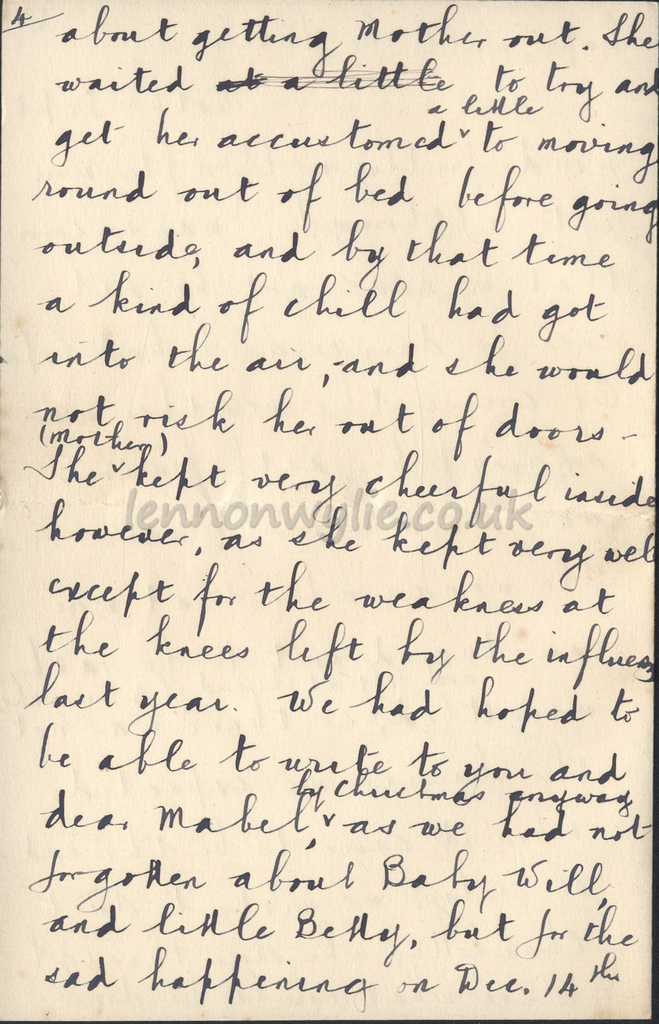 4
about getting Mother out. She
waited at a little to try and
a little
get her accustomed ˅ to moving
round out of bed before going
outside, and by that time
a kind of chill had got
into the air, and she would
not risk her out of doors –
(Mother)
She ˅ kept very cheerful inside
lennonwylie.co.uk
however, as she kept very well
except for the weakness at
the knees left by the influenz
last year. We had hoped to
be able to write to you and
by Christmas anyway
dear Mabel, ˅ as we had not
forgotten about Baby Will,
and little Betty, but for the
sad happening on Dec. 14th